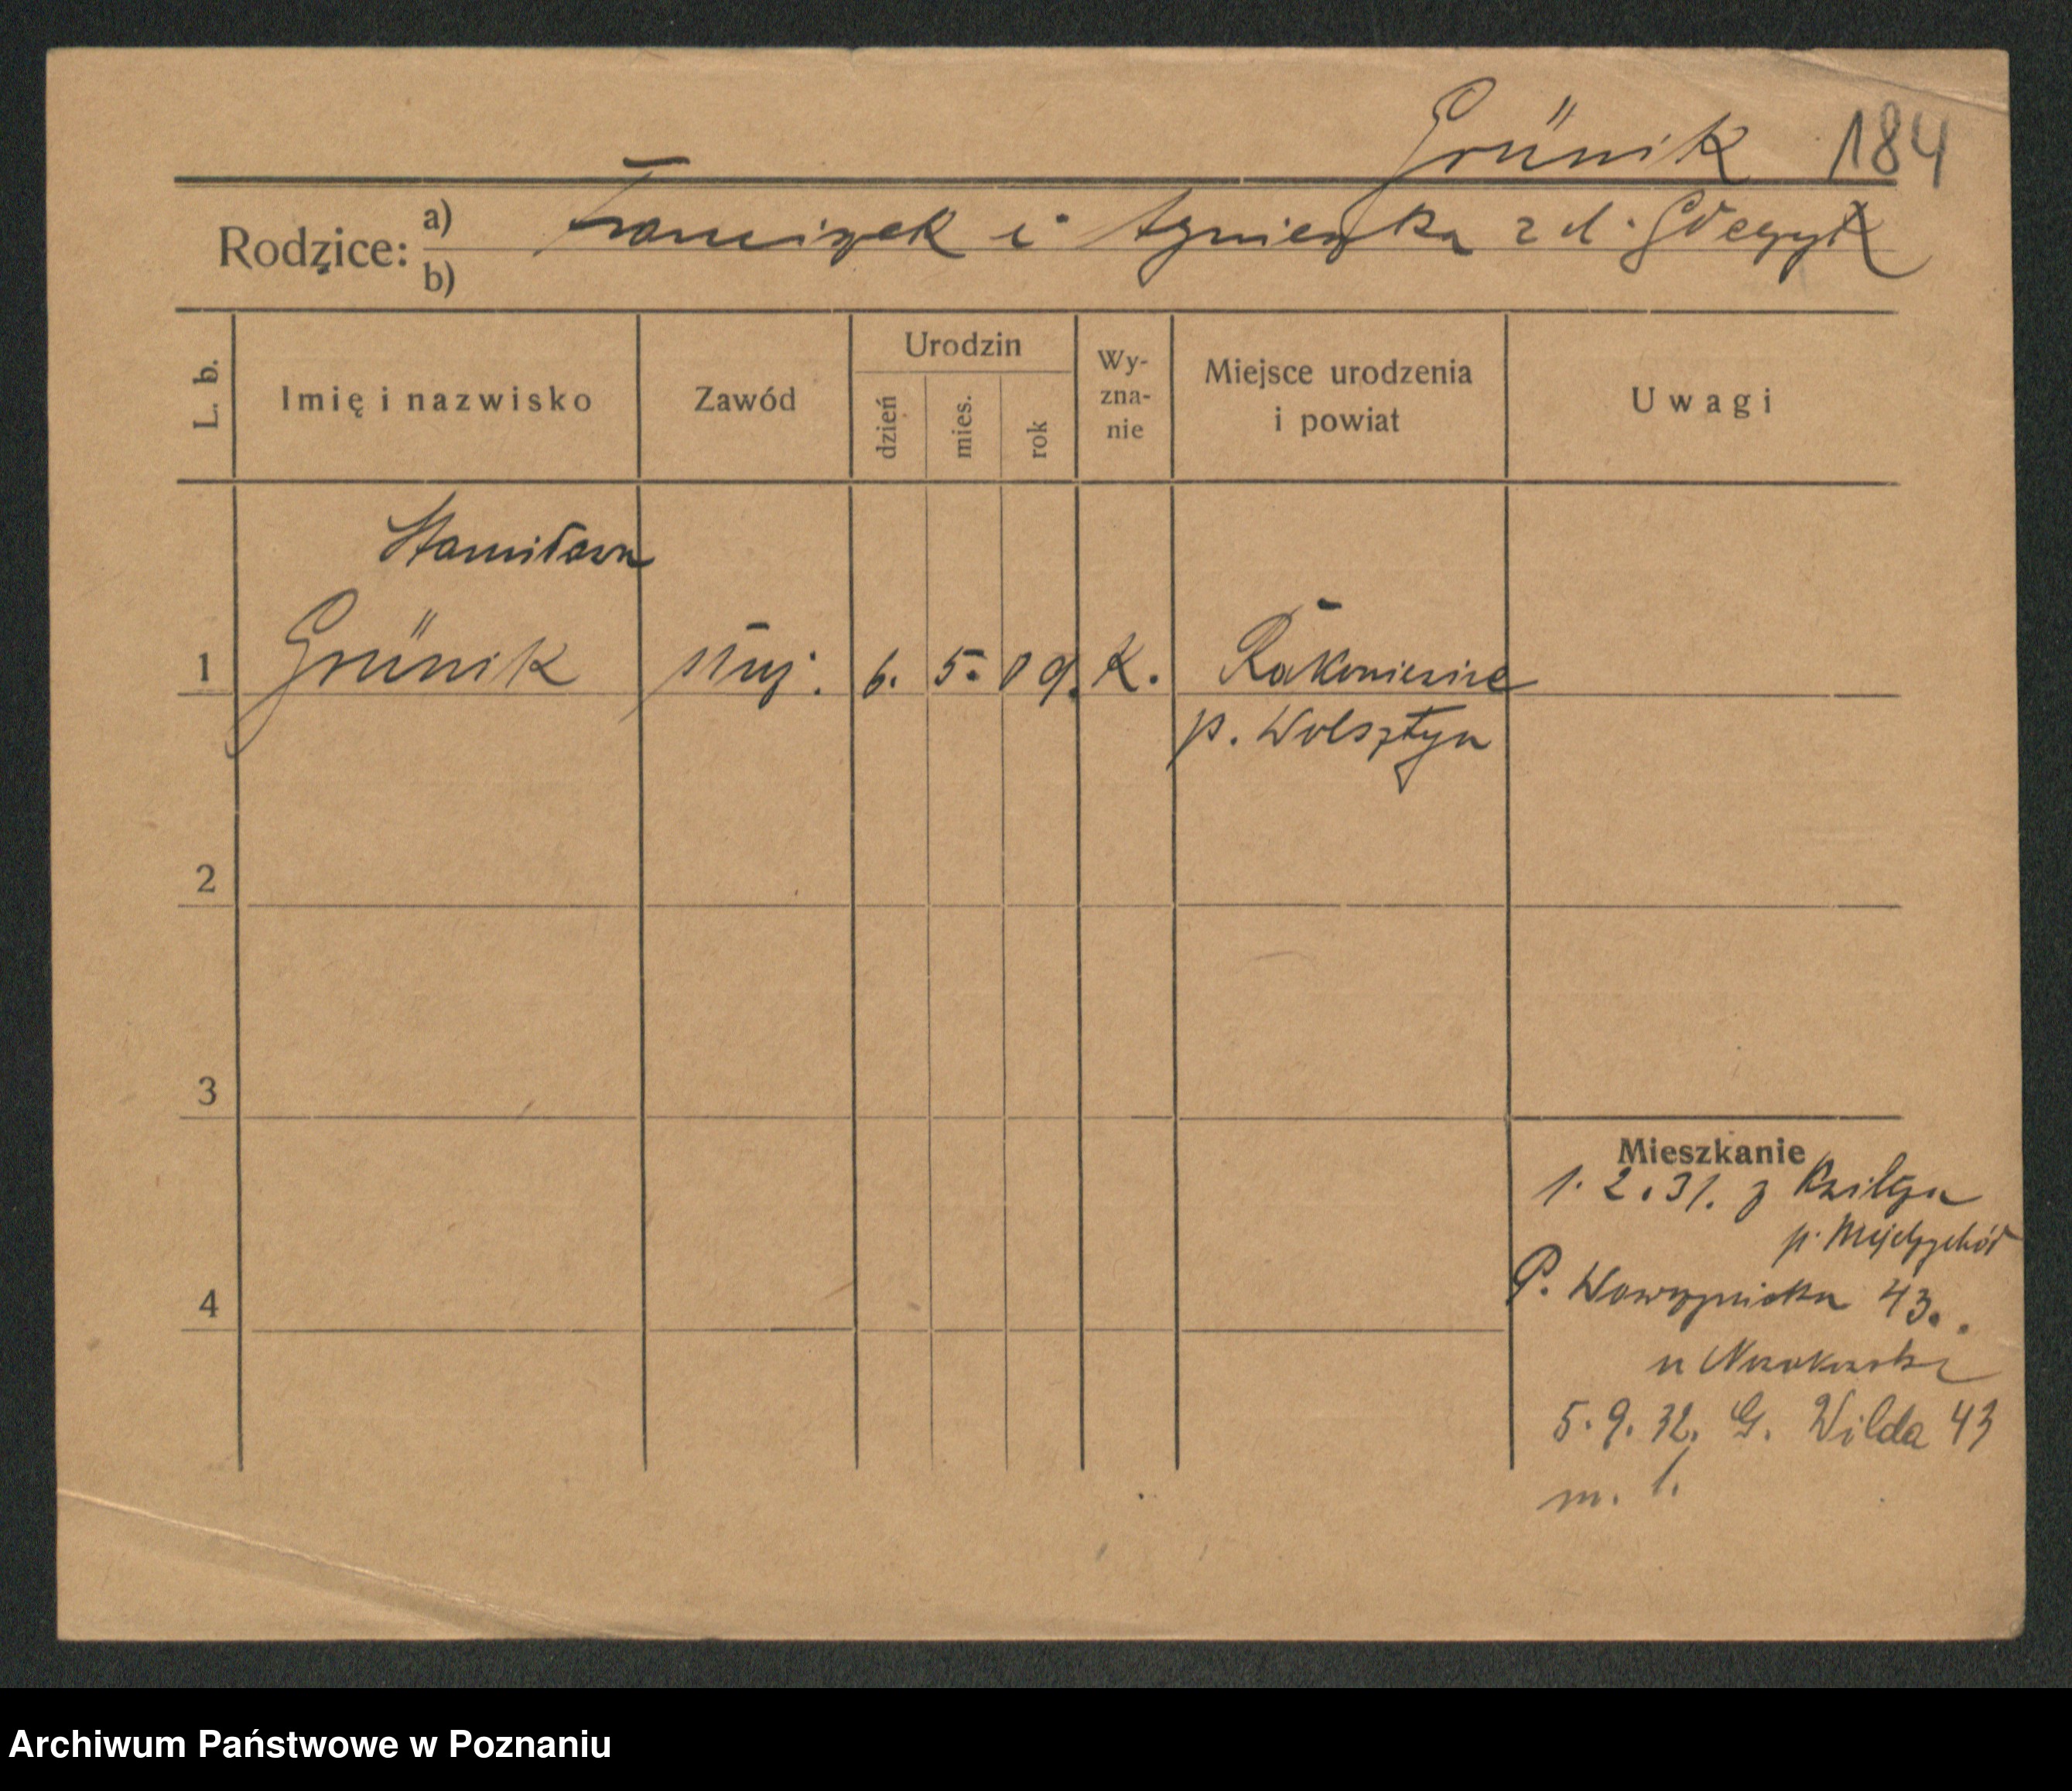 Grünik 184
Rodzice: a) Franciszek i Agnieszka z d.
b)
L. b. Imię i nazwisko Zawód Urodzin dzień mies. rok Wyznanie Miejsce urodzenia i powiat Uwagi
Stanisława
1 Grünik służ. 6. 5. 09. K. Rakoniewice
p. Wolsztyn
2
3
Mieszkanie
1. 2. 31. z
p. Międzychód
4 P. Wawrzyniaka 43.
u
5. 9. 32. G. Wilda 43
m. 1.
Archiwum Państwowe w Poznaniu